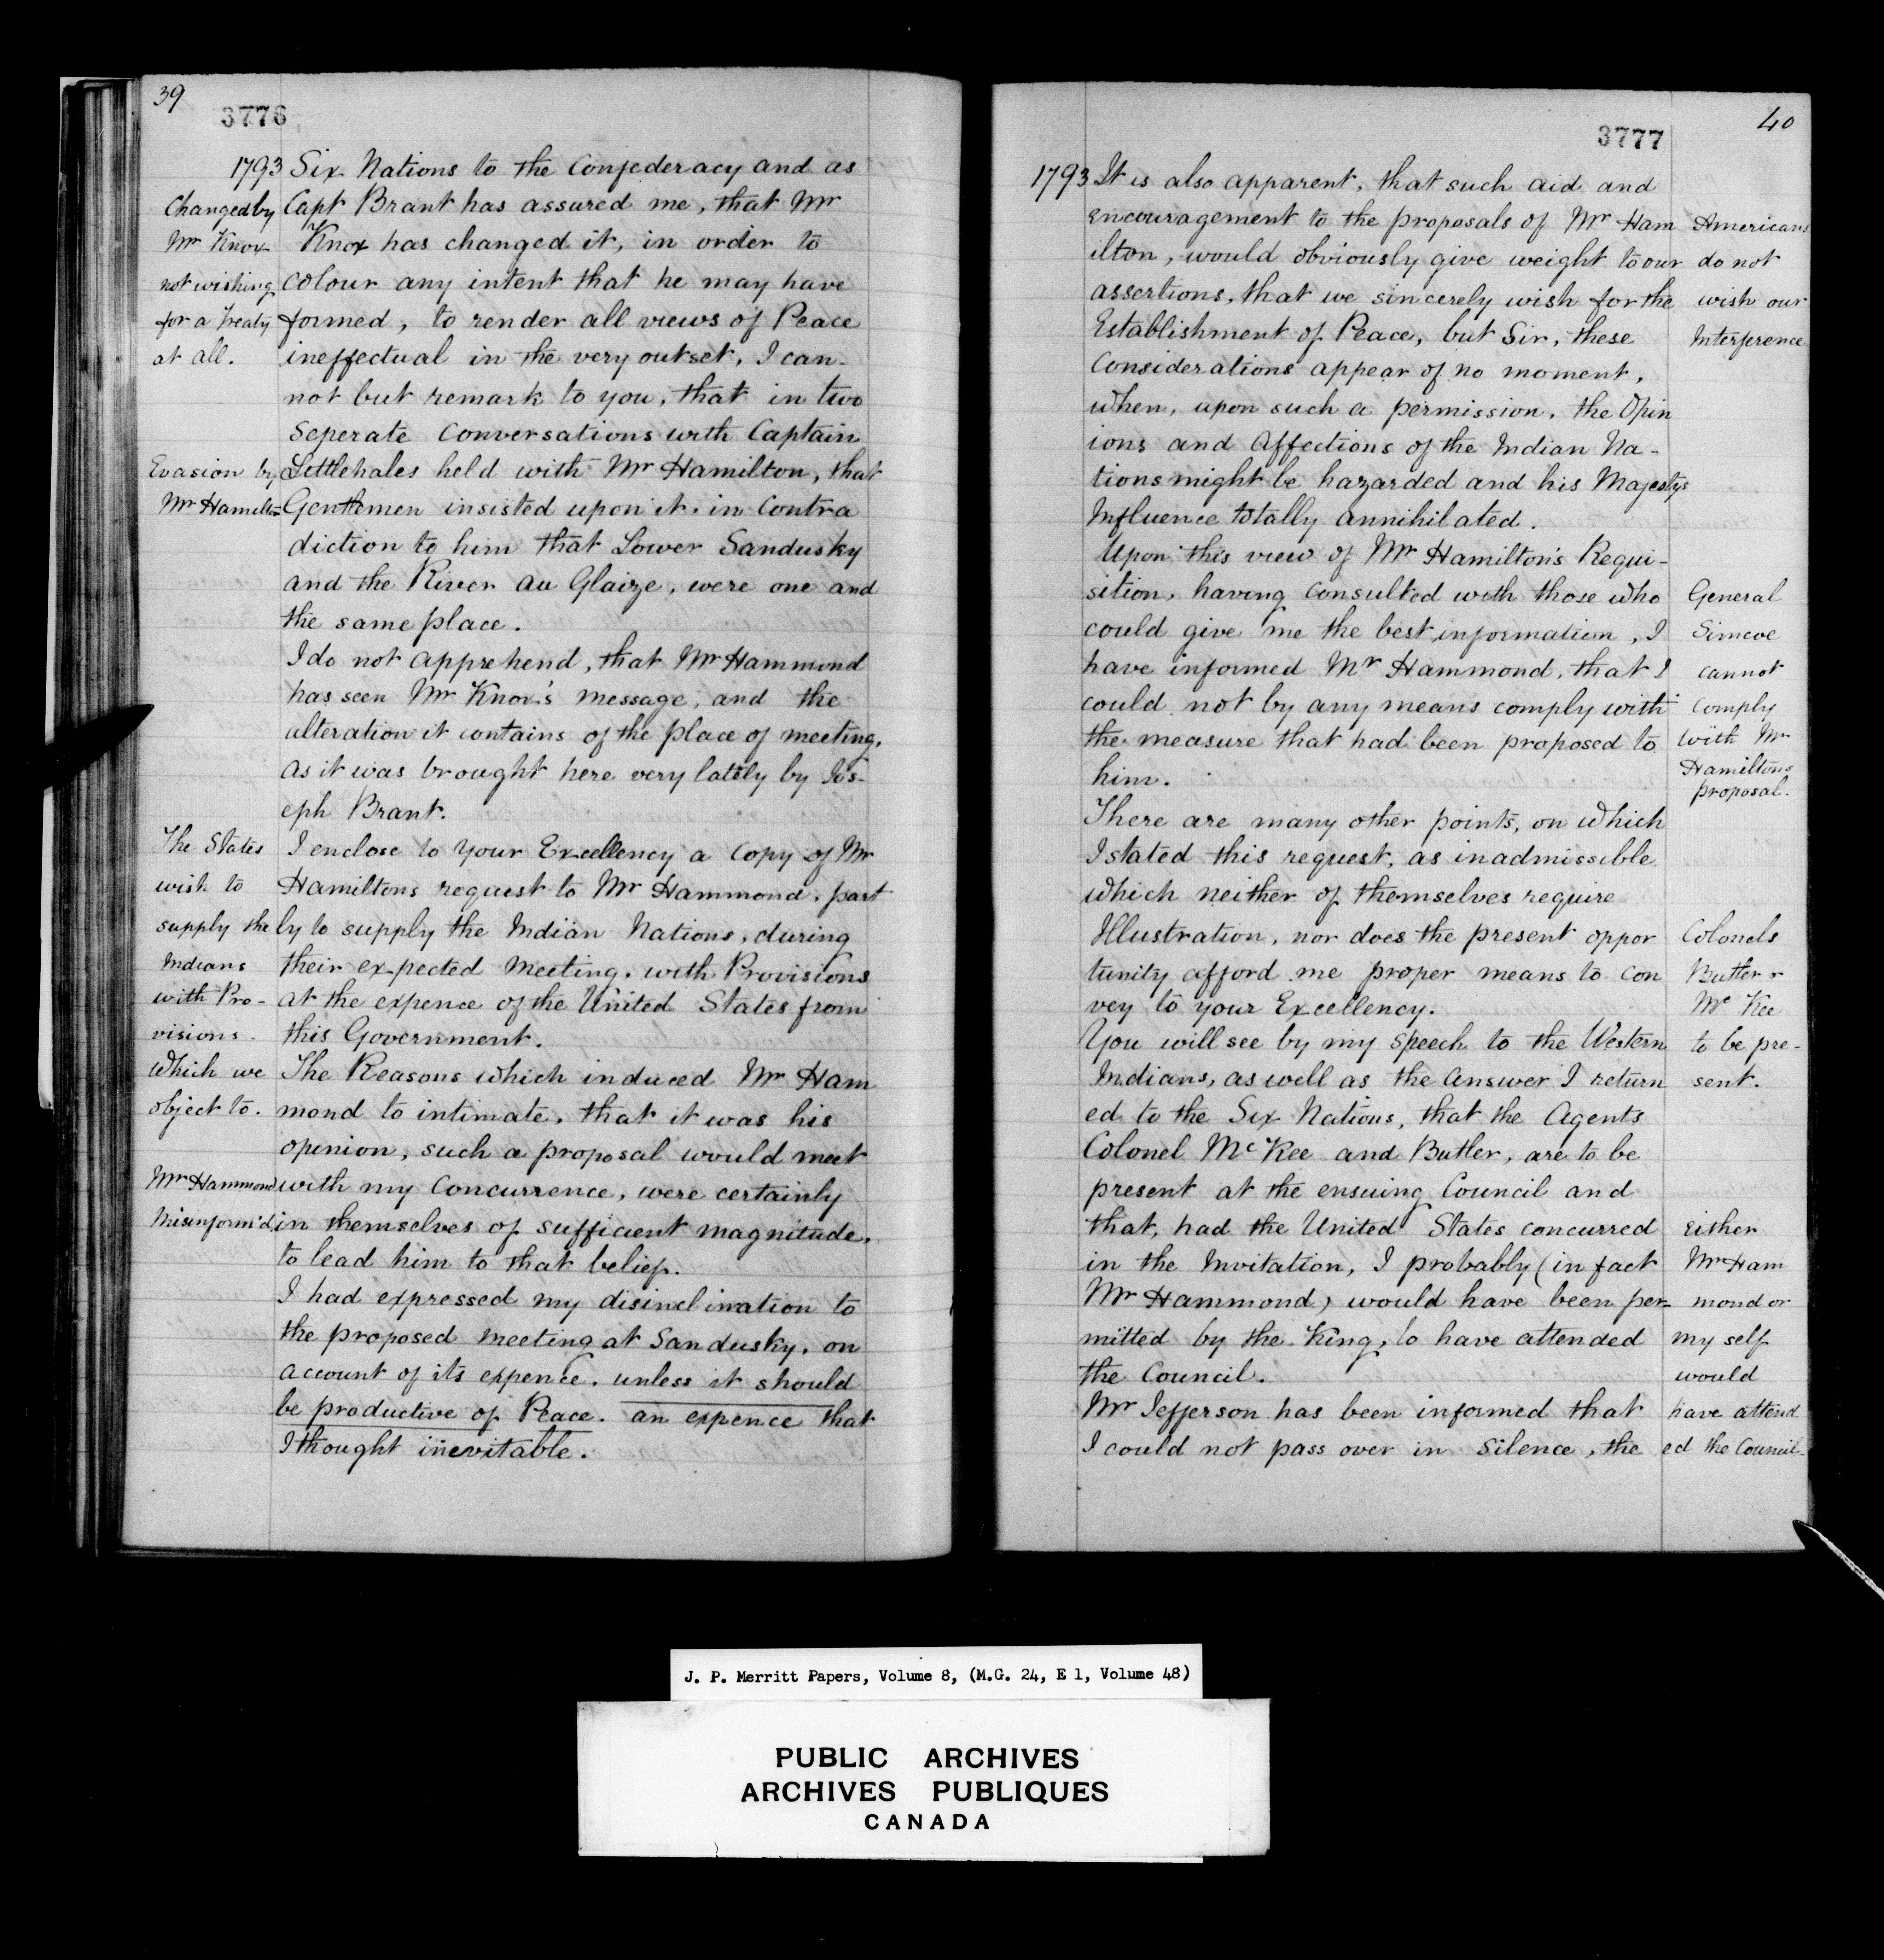 39
3776
1793 Six Nations to the Confederacy and as
Capt Brant has assured me, that Mr
Knox has changed it, in order to
colour any intent that he may have
formed, to render all views of Peace
ineffectual in the very outset, I can-
not but remark to you, that in two
Seperate Conversations with Captain
Littlehales held with Mr Hamilton, that
Gentlemen insisted upon it, in Contra
diction to him that Lower Sandusky
and the River au Glaize, were one and
the same place.
I do not apprehend, that Mr Hammond
has seen Mr Knox's message, and the
alteration it contains of the place of meeting,
as it was brought here very lately by Jos-
eph Brant.
I enclose to Your Excellency a Copy of Mr
Hamiltons request to Mr Hammond, part
ly to supply the Indian Nations, during
their expected Meeting, with Provisions
at the expence of the United States from
this Government.
The Reasons which induced Mr Ham
mond to intimate, that it was his
openion, such a proposal would meet
with my Concurrence, were certainly
in themselves of sufficient magnitude,
to lead him to that belief.
I had expressed my disinclination to
the proposed Meeting at Sandusky, on
account of its expence, unless it should
be productive of Peace. an expence that
I thought inevitable.
Changed by
Mr Knox
not wishing
for a Treaty
at all.
Evasion by
Mr Hamilton
The States
wish to
supply the
Indians
with Pro-
visions.
Which we
object to.
Mr Hammond
Misinform'd
40
3777
1793 It is also apparent, that such aid and
encouragement to the proposals of Mr Ham
ilton, would obviously give weight to our
assertions, that we sincerely wish for the
Establishment of Peace, but Sir, these
Considerations appear of no moment,
when, upon such a permission, the Opin
ions and Affections of the Indian Na-
tions might be hazarded and his Majestys
Influence totally annihilated.
Upon this view of Mr Hamilton's Requi-
sition, having Consulted with those who
could give me the best information, I
have informed Mr Hammond, that I
could not by any means comply with
the measure that had been proposed to
him.
There are many other points, on which
I stated this request, as inadmissible
which neither of themselves require
Illustration, nor does the present oppor
tunity afford me proper means to con
vey to your Excellency.
You will see by my Speech to the Western
Indians, as well as the Answer I return
ed to the Six Nations, that the Agents
Colonel Mc Kee and Butler, are to be
present at the ensuing Council and
that, had the United States concurred
in the Invitation, I probably (in fact
Mr Hammond) would have been per-
mitted by the King, to have attended
the Council.
Mr Jefferson has been informed that
I could not pass over in Silence, the
Americans
do not
wish our
Interference
General
Simcoe
cannot
Comply
with Mr
Hamiltons
proposal.
Colonels
Butler &
Mc Kee
to be pre-
sent.
Either
Mr Ham
mond or
my self
would
have attend
ed the Council-
J. P. Merritt Papers, Volume 8, (M.G. 24, E 1, Volume 48)
PUBLIC ARCHIVES
ARCHIVES PUBLIQUES
CANADA